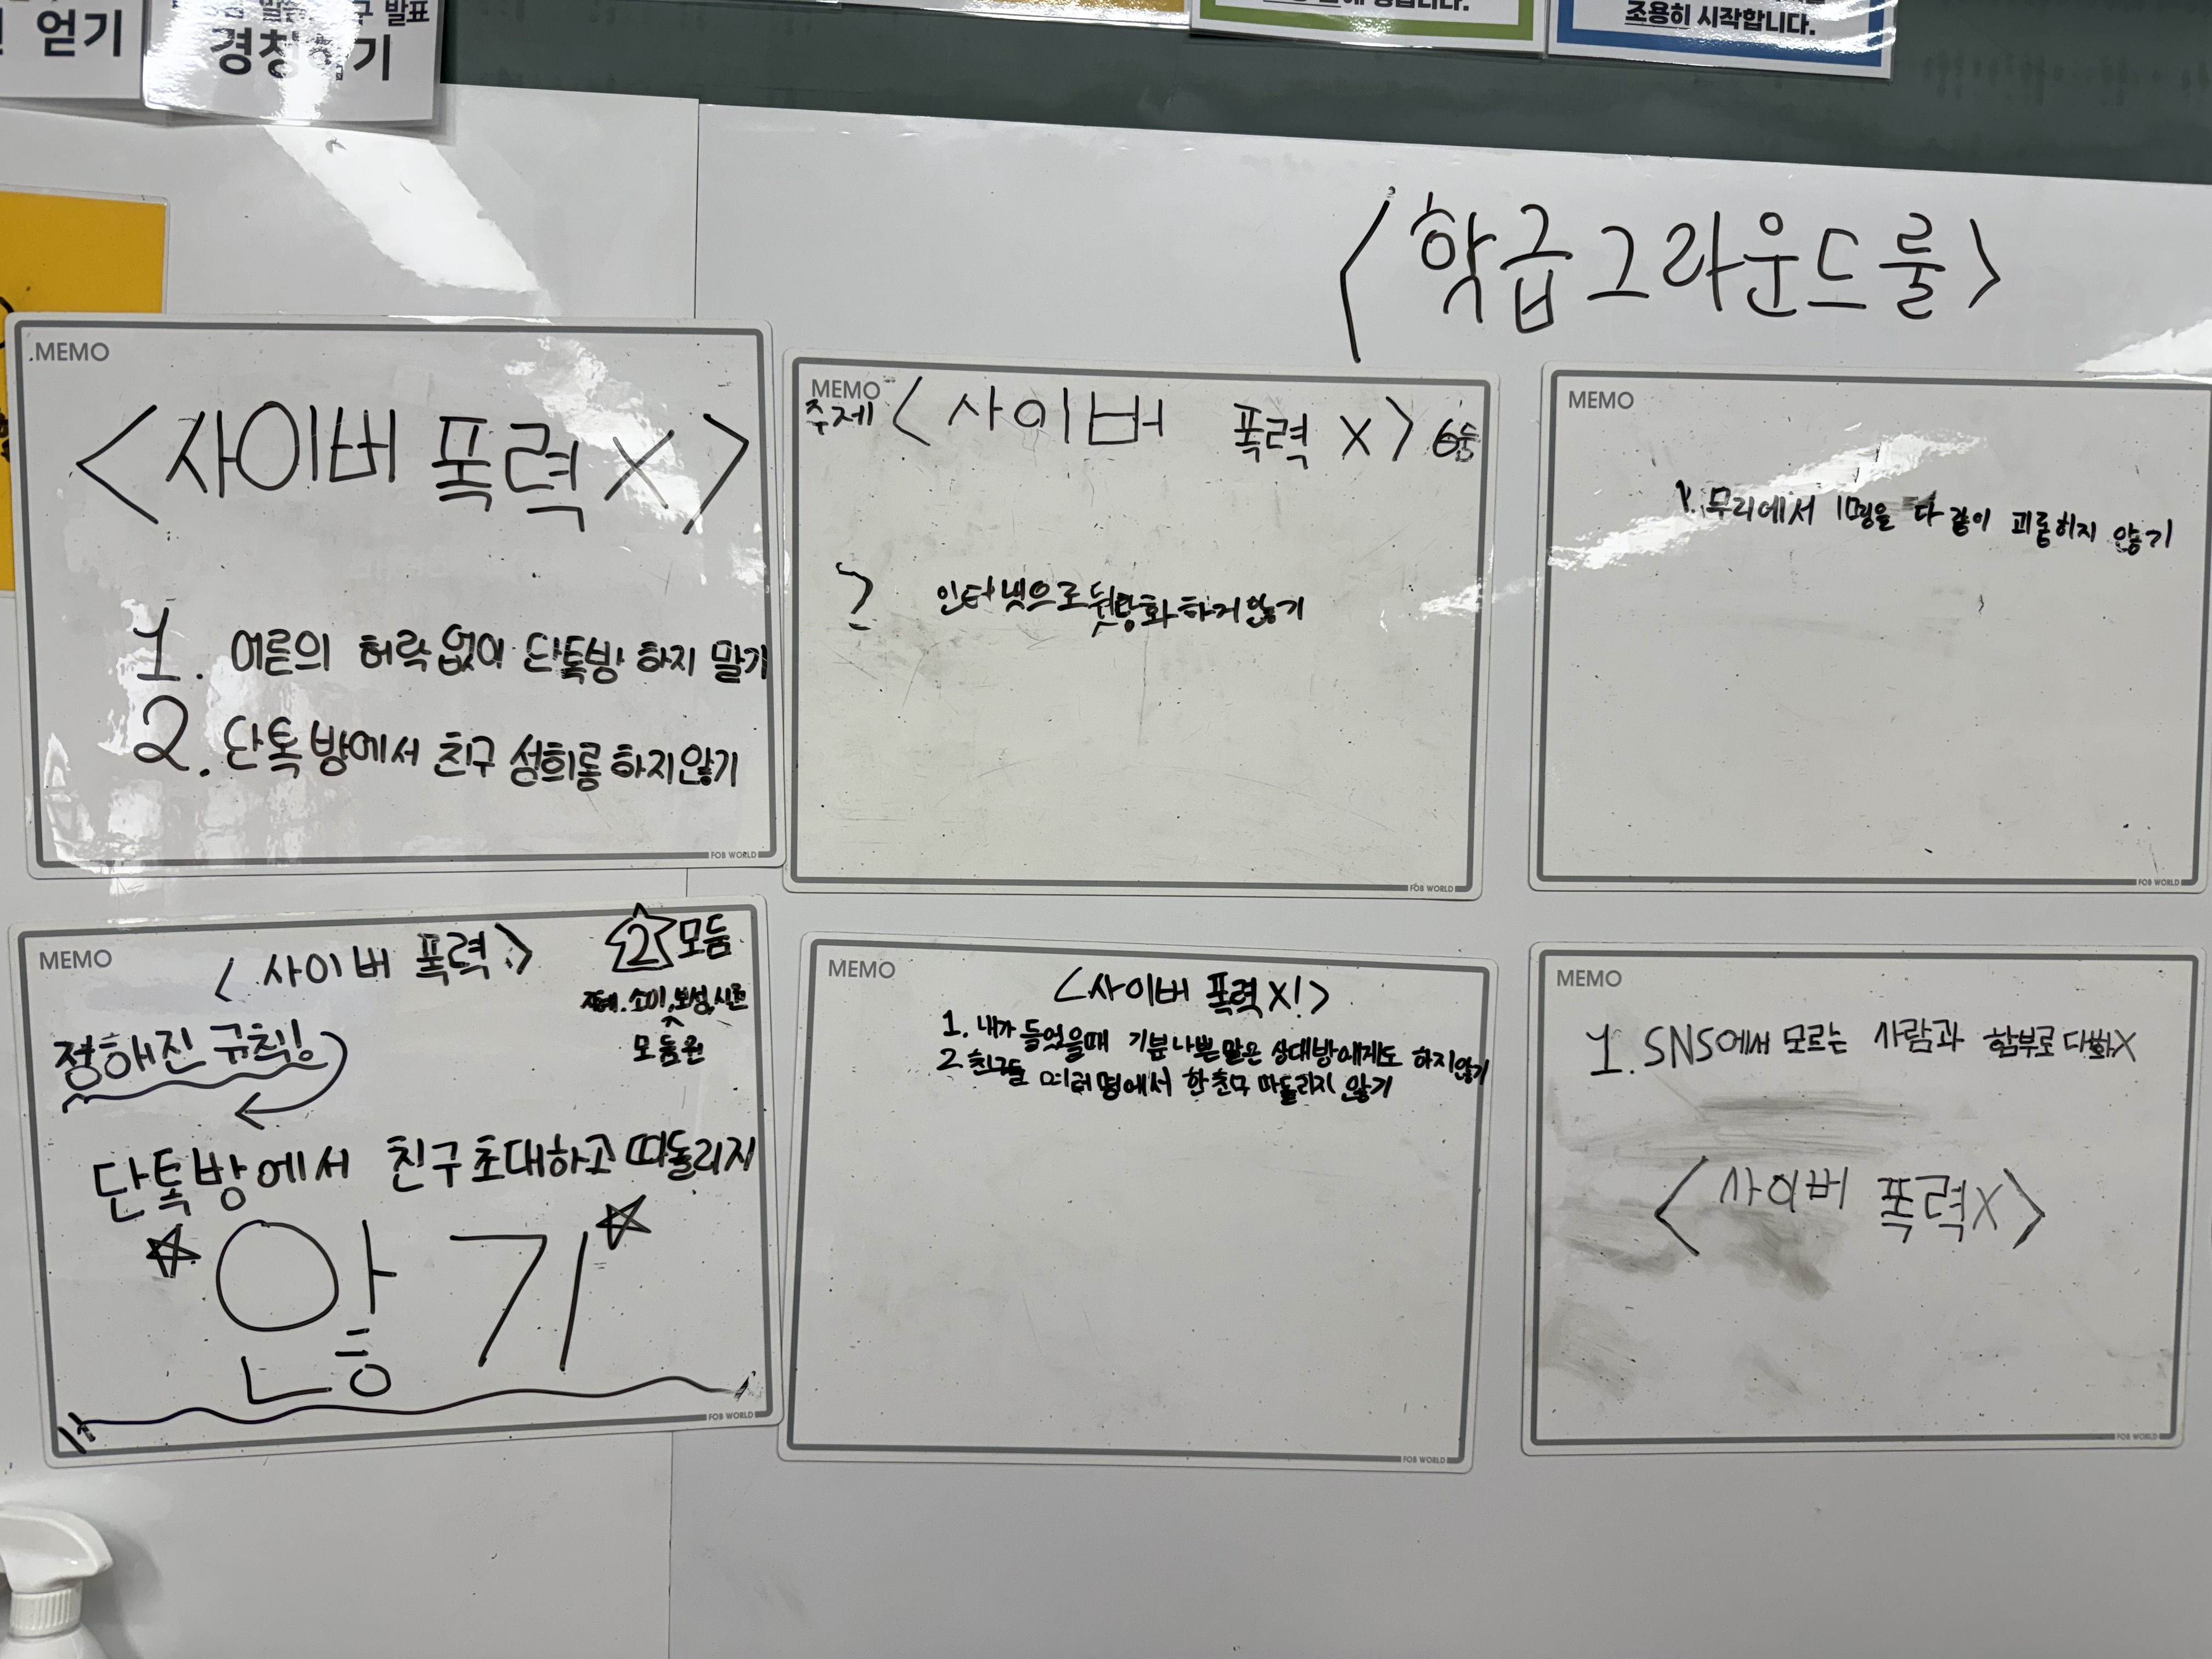 얻기
발표
경청하기
조용히 시작합니다.
<학급그라운드룰>
MEMO
<사이버 폭력 X>
1. 어른의 허락 없이 단톡방 하지 말기
2. 단톡방에서 친구 성희롱 하지 않기
FOB WORLD
MEMO
주제 <사이버 폭력 X> 6
2 인터넷으로 뒷담화 하지 않기
FOB WORLD
MEMO
1. 무리에서 1명을 다 같이 괴롭히지 않기
FOB WORLD
MEMO
<사이버 폭력>
2모둠
소미, 보성,
모둠원
정해진 규칙!
단톡방에서 친구 초대하고 따돌리지
않기
FOB WORLD
MEMO
<사이버 폭력 X!>
1. 내가 들었을때 기분나쁜말은 상대방에게도 하지않기
2. 친구들 여러명에서 한 친구 따돌리지 않기
FOB WORLD
MEMO
1. SNS에서 모르는 사람과 함부로 대화X
<사이버 폭력X>
FOB WORLD